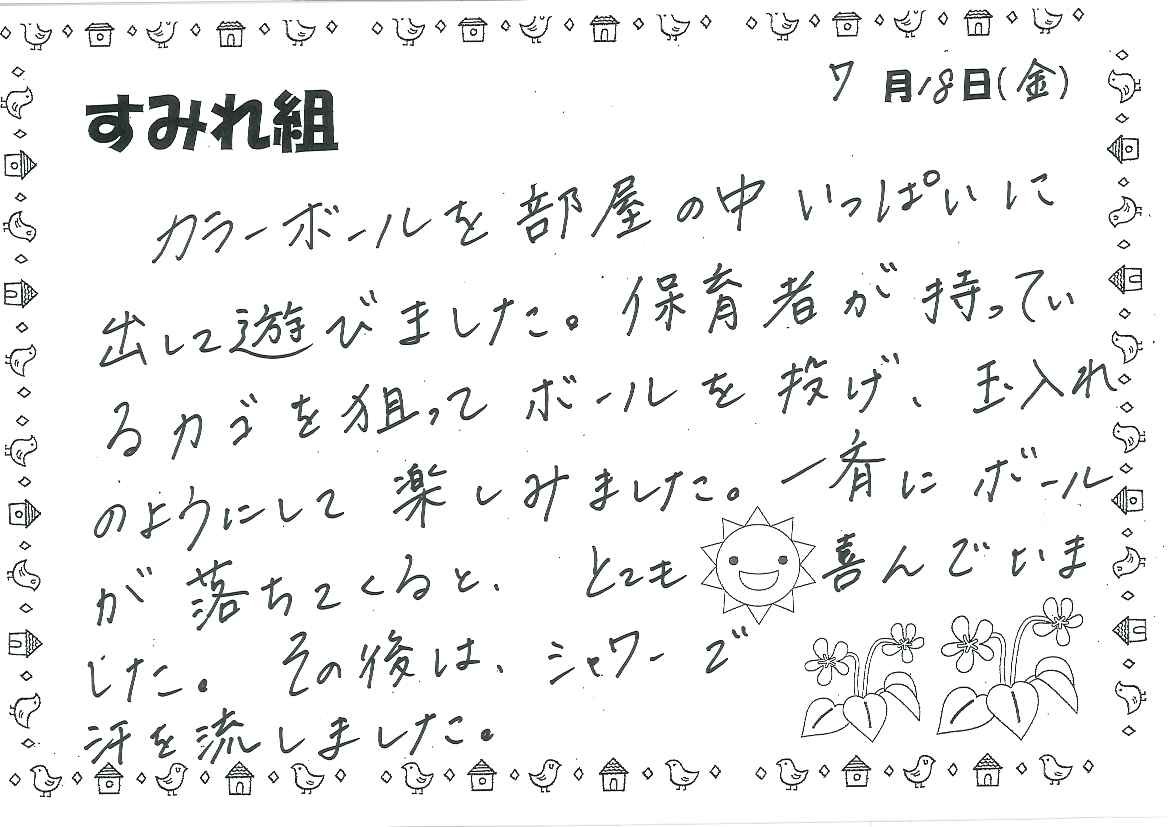 7月18日(金)
すみれ組
カラーボールを部屋の中いっぱいに
出して遊びました。保育者が持ってい
るカゴを狙ってボールを投げ、玉入れ
のようにして楽しみました。一斉にボール
が落ちてくると、とても喜んでいま
した。その後は、シャワーで
汗を流しました。